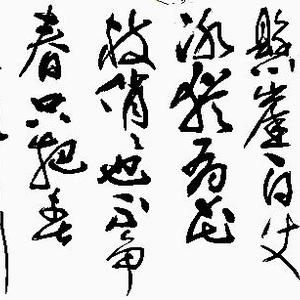 懸崖百丈
冰猶有花
枝俏々也不争
春只把春